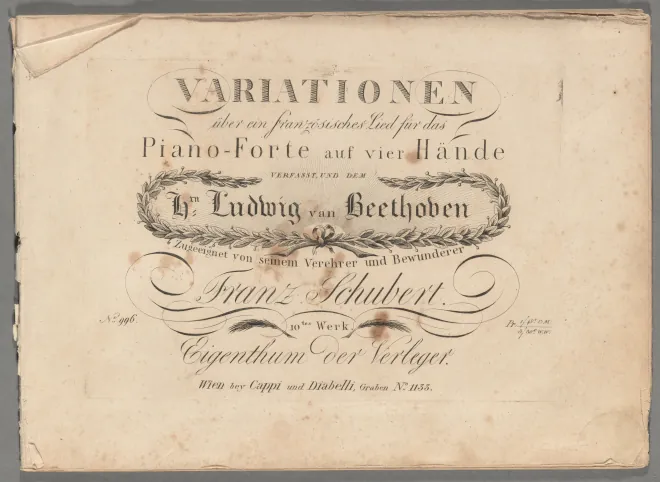 VARIATIONEN
über ein französisches Lied für das
Piano-Forte auf vier Hände
VERFASST, UND DEM
Hrn Ludwig van Beethoven
Zugeeignet von seinem Verehrer und Bewunderer
Franz Schubert.
No. 996.
10tes Werk.
Eigenthum der Verleger.
Wien bey Cappi und Diabelli, Graben No. 1133.